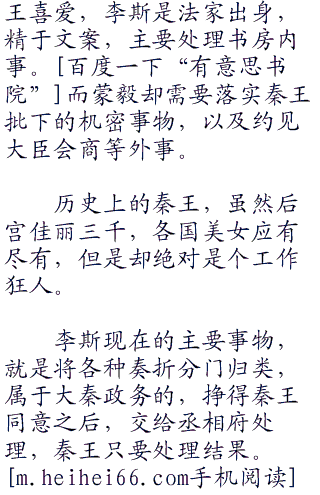 王喜爱，李斯是法家出身，
精于文案，主要处理书房内
事。[百度一下“有意思书
院”]而蒙毅却需要落实秦王
批下的机密事物，以及约见
大臣会商等外事。
历史上的秦王，虽然后
宫佳丽三千，各国美女应有
尽有，但是却绝对是个工作
狂人。
李斯现在的主要事物，
就是将各种奏折分门归类，
属于大秦政务的，挣得秦王
同意之后，交给丞相府处
理，秦王只要处理结果。
[m.heihei66.com手机阅读]